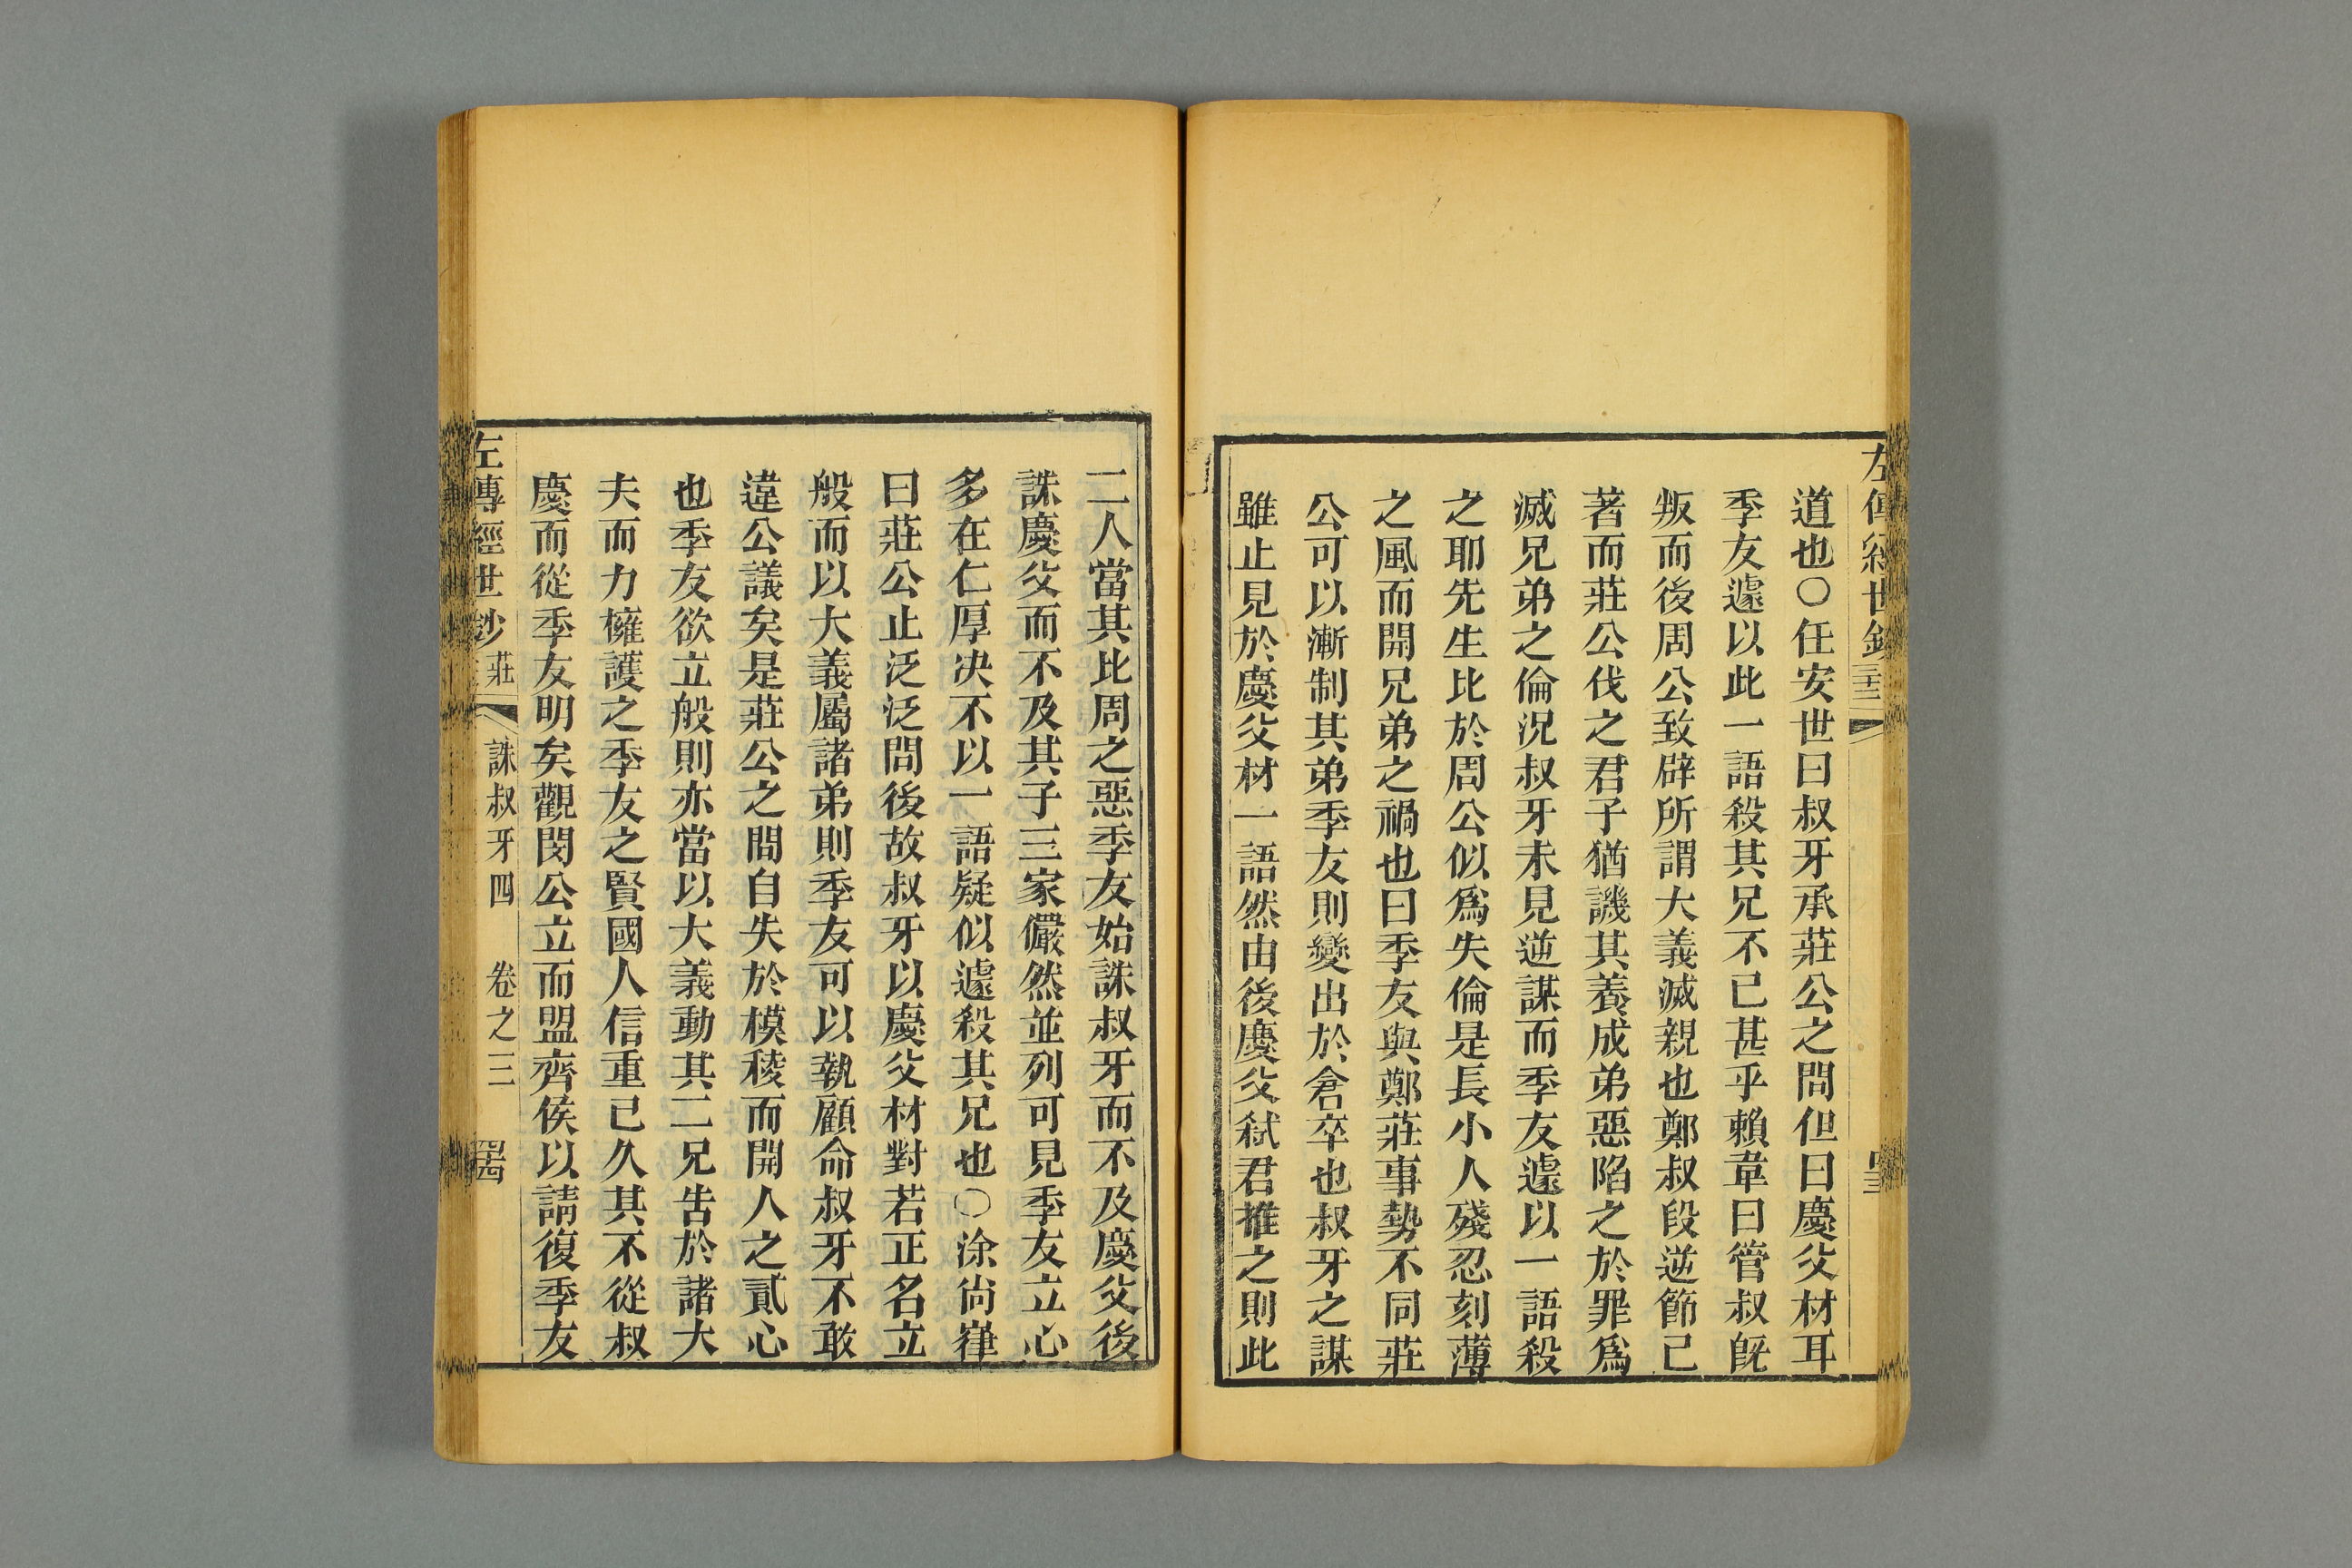 左傳經世鈔
道也○任安世曰叔牙承莊公之問但曰慶父材耳
季友遽以此一語殺其兄不已甚乎賴韋曰管叔旣
叛而後周公致辟所謂大義滅親也鄭叔段逆節已
著而莊公伐之君子猶譏其養成弟惡陷之於罪爲
滅兄弟之倫況叔牙未見逆謀而季友遽以一語殺
之耶先生比於周公似爲失倫是長小人殘忍刻薄
之風而開兄弟之禍也曰季友與鄭莊事勢不同莊
公可以漸制其弟季友則變出於倉卒也叔牙之謀
雖止見於慶父材一語然由後慶父弑君推之則此
二人當其比周之惡季友始誅叔牙而不及慶父後
誅慶父而不及其子三家儼然並列可見季友立心
多在仁厚決不以一語疑似遽殺其兄也○涂尙嵂
曰莊公止泛泛問後故叔牙以慶父材對若正名立
般而以大義屬諸弟則季友可以執顧命叔牙不敢
違公議矣是莊公之問自失於模稜而開人之貳心
也季友欲立般則亦當以大義動其二兄吿於諸大
夫而力擁護之季友之賢國人信重已久其不從叔
慶而從季友明矣觀閔公立而盟齊侯以請復季友
左傳經世鈔 莊 誅叔牙四 卷之三